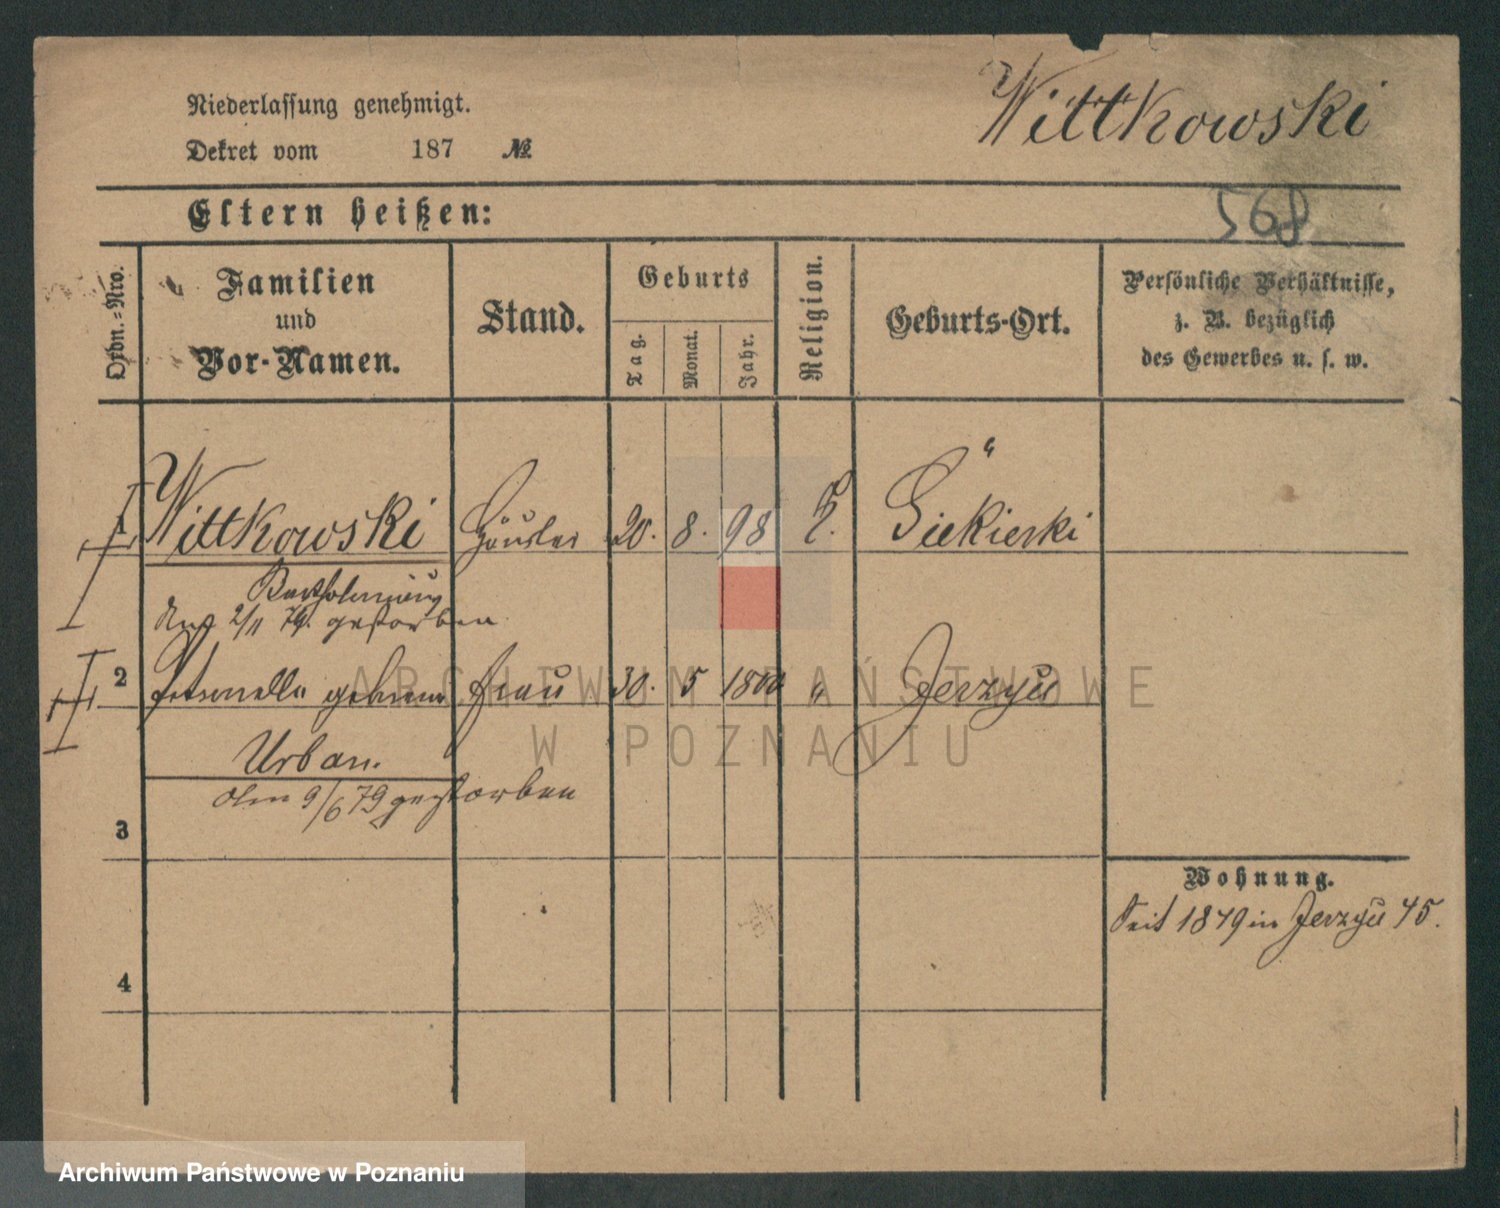 Niederlassung genehmigt.
Dekret vom 187 №
Wittkowski
568
Eltern heißen:
Ordn.-Nro.
Familien
und
Vor-Namen.
Stand.
Geburts
Tag.
Monat.
Jahr.
Religion.
Geburts-Ort.
Persönliche Verhältnisse,
z. B. bezüglich
des Gewerbes u. s. w.
1 Wittkowski Häusler 20. 8. 98 Siekierki
Bartholomäus
2/11 79. gestorben
2 Petronella geborne Frau 30. 5 1800 " Jerzyce
Urban.
den 9/6 79 gestorben
3
Wohnung.
Seit 1879 in Jerzyce 45.
4
ARCHIWUM PAŃSTWOWE
W POZNANIU
Archiwum Państwowe w Poznaniu